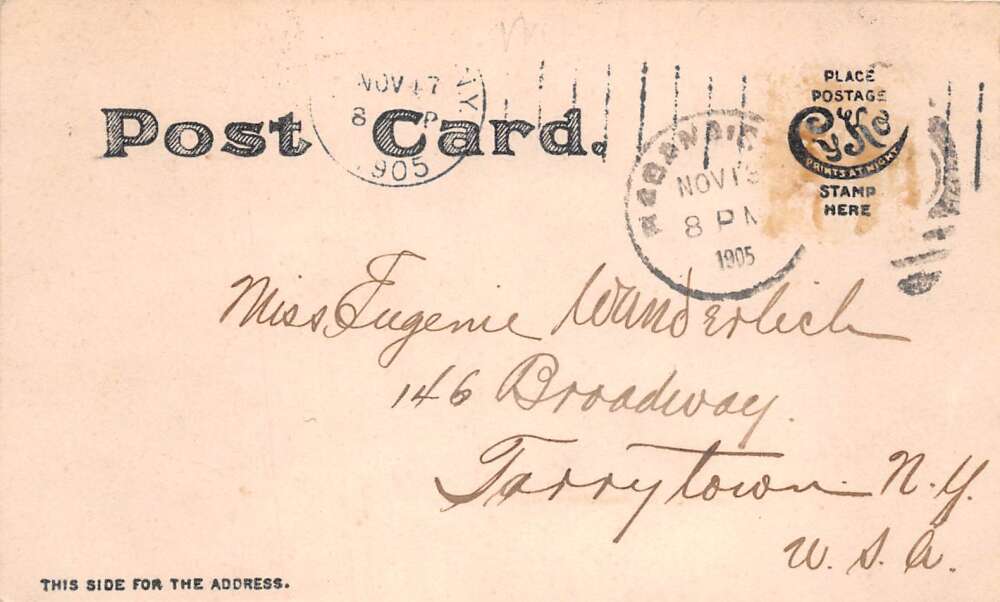 Post Card.
NOV 17
8 P
1905
NY
NOV 13
8 PM
1905
PLACE
POSTAGE
CYKO
PRINTS AT NIGHT
STAMP
HERE
Miss Eugenie Wunderlich
146 Broadway.
Tarrytown N.Y.
U.S.A.
THIS SIDE FOR THE ADDRESS.